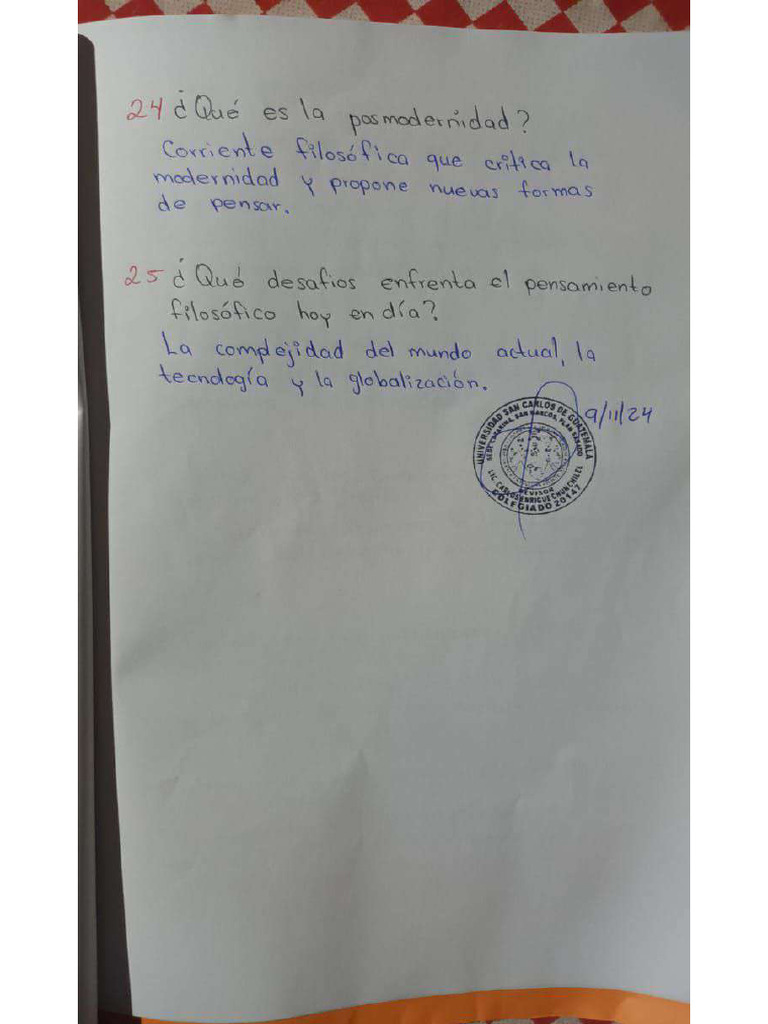 24 ¿Qué es la posmodernidad?
Corriente filosófica que critica la
modernidad y propone nuevas formas
de pensar.
25 ¿Qué desafios enfrenta el pensamiento
filosófico hoy en día?
La complejidad del mundo actual, la
tecnología y la globalización.
9/11/24
UNIVERSIDAD SAN CARLOS DE GUATEMALA
SAN MARCOS, PLAN SABADO
LIC. CARLOS ENRIQUE CHUN
REVISOR
COLEGIADO 20147